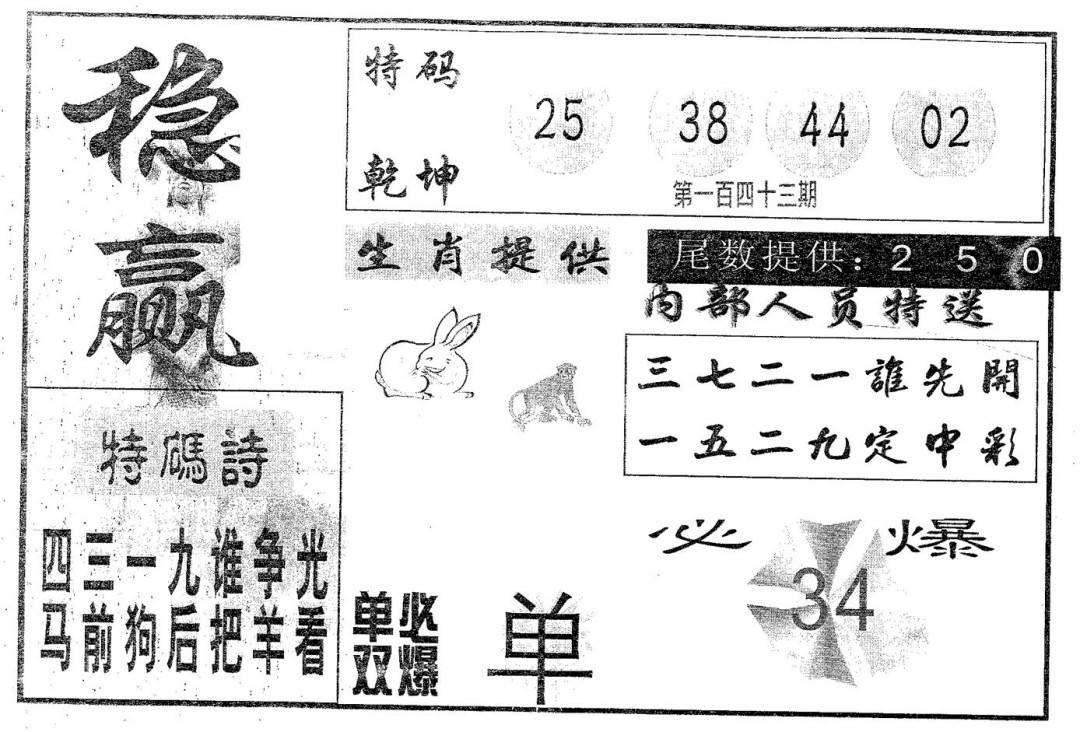 稳赢
特码
乾坤
25 38 44 02
第一百四十三期
生肖提供
尾数提供：2 5 0
内部人员特送
三七二一誰先開
一五二九定中彩
特碼詩
四三一九谁争光
马前狗后把羊看
单双
必爆
单
必爆
34